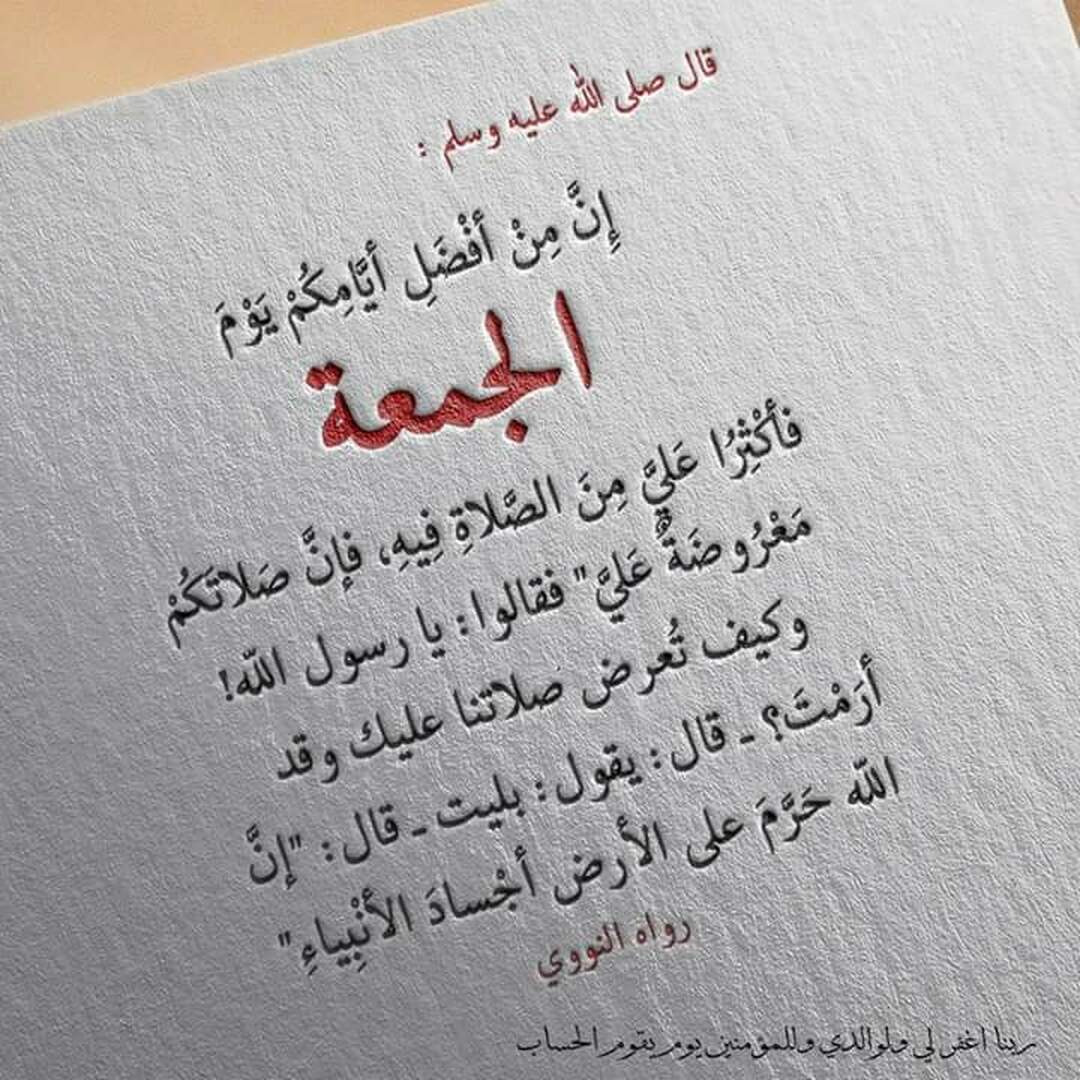 قال صلى الله عليه وسلم :
إِنَّ مِنْ أفْضَلِ أيَّامِكُمْ يَوْمَ
الجمعة
فأكْثِرُا عَليَّ مِنَ الصَّلاةِ فِيهِ، فإنَّ صَلاتَكُمْ
مَعْرُوضَةٌ عَليَّ" فقالوا: يا رسول اللّه!
وكيف تُعرض صلاتنا عليك وقد
أرَمْتَ؟ ـ قال: يقول: بليت ـ قال: "إنَّ
اللّه حَرَّمَ على الأرض أجْسادَ الأنْبِياءِ"
رواه النووي
ربنا اغفر لي ولوالدي وللمؤمنين يوم يقوم الحساب